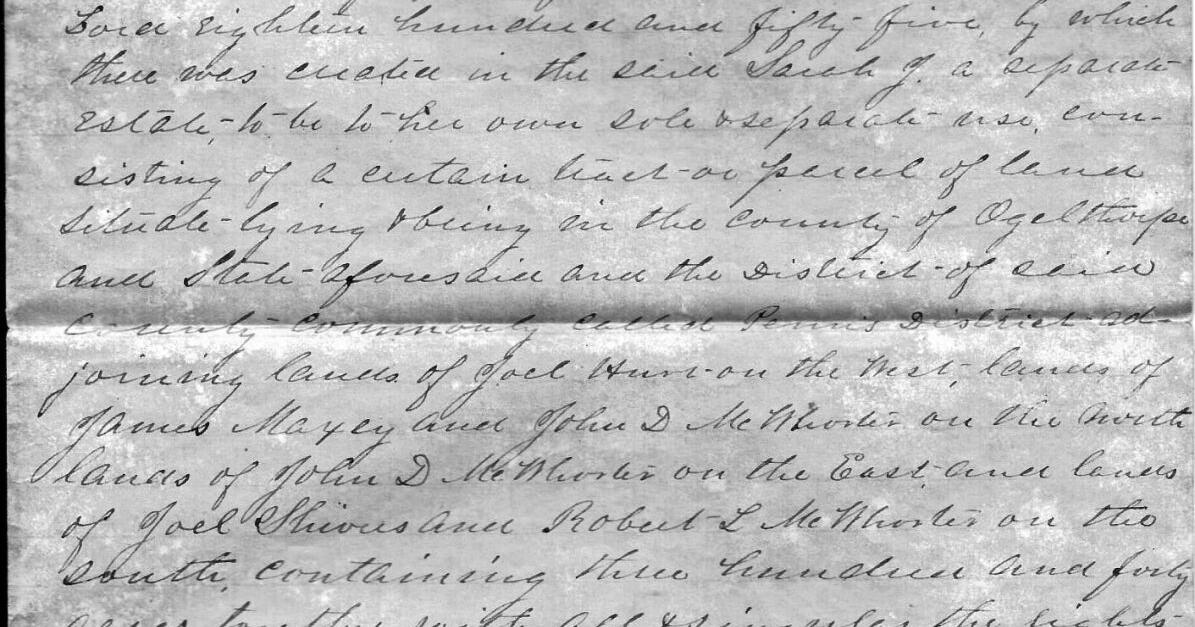 Lord Eighteen hundred and fifty-five, by which
there was created in the said Sarah J. a separate
Estate, to be to her own sole & separate use, con-
sisting of a certain tract or parcel of land
Situate lying & being in the County of Ogelthorpe
and State aforesaid and the District of said
County commonly called District ad-
joining lands of Joel Hurt on the West, lands of
James Maxey and John D McWhorter on the North
lands of John D McWhorter on the East and lands
of Joel and Robert L McWhorter on the
south, containing three hundred and forty
acres together with all & singular the rights